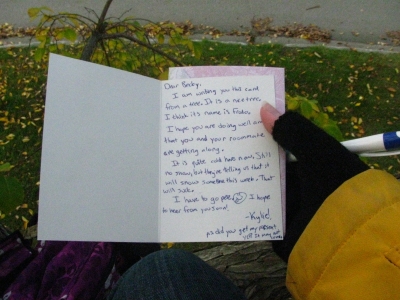 Dear Becky,
I am writing you this card
from a tree. It is a nice tree.
I think it's name is Frodo.
I hope you are doing well and
that you and your roommate
are getting along.
It is quite cold here now. Still
no snow, but they're telling us that it
will snow sometime this week. That
will suck.
I have to go pee. I hope
to hear from you soon!
-Kylie!
p.s did you get my present
yet? It may get